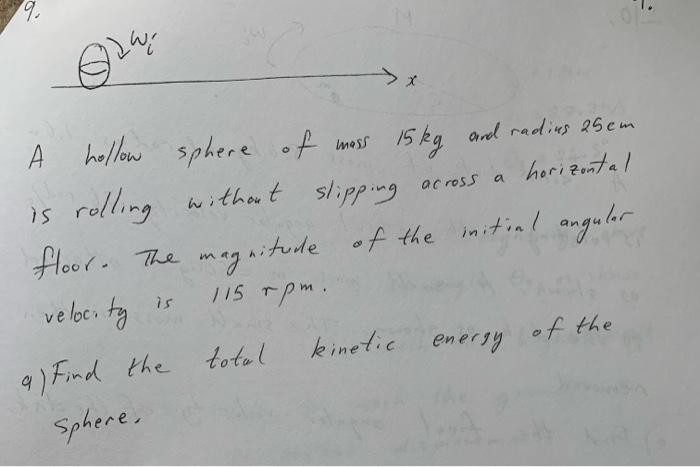 9.
ωi
x
A hollow sphere of mass 15 kg and radius 25 cm
is rolling without slipping across a horizontal
floor. The magnitude of the initial angular
velocity is 115 rpm.
a) Find the total kinetic energy of the
sphere.